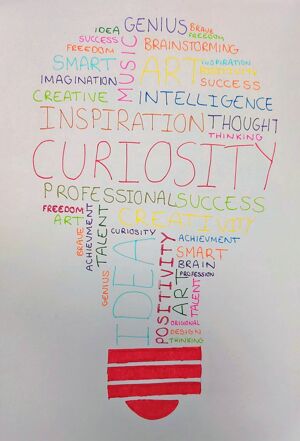 GENIUS
IDEA
BRAVE
FREEDOM
SUCCESS
MUSIC
BRAINSTORMING
FREEDOM
SMART
ART
INSPIRATION
IMAGINATION
SUCCESS
CREATIVE
INTELLIGENCE
INSPIRATION
THOUGHT
THINKING
CURIOSITY
PROFESSIONAL
SUCCESS
FREEDOM
ART
BRAVE
ACHIEVMENT
TALENT
CREATIVITY
CURIOSITY
IDEA
POSITIVITY
ACHIEVMENT
SMART
BRAIN
PROFESSION
GENIUS
ART
TALENT
ORIGIONAL
DESIGN
THINKING